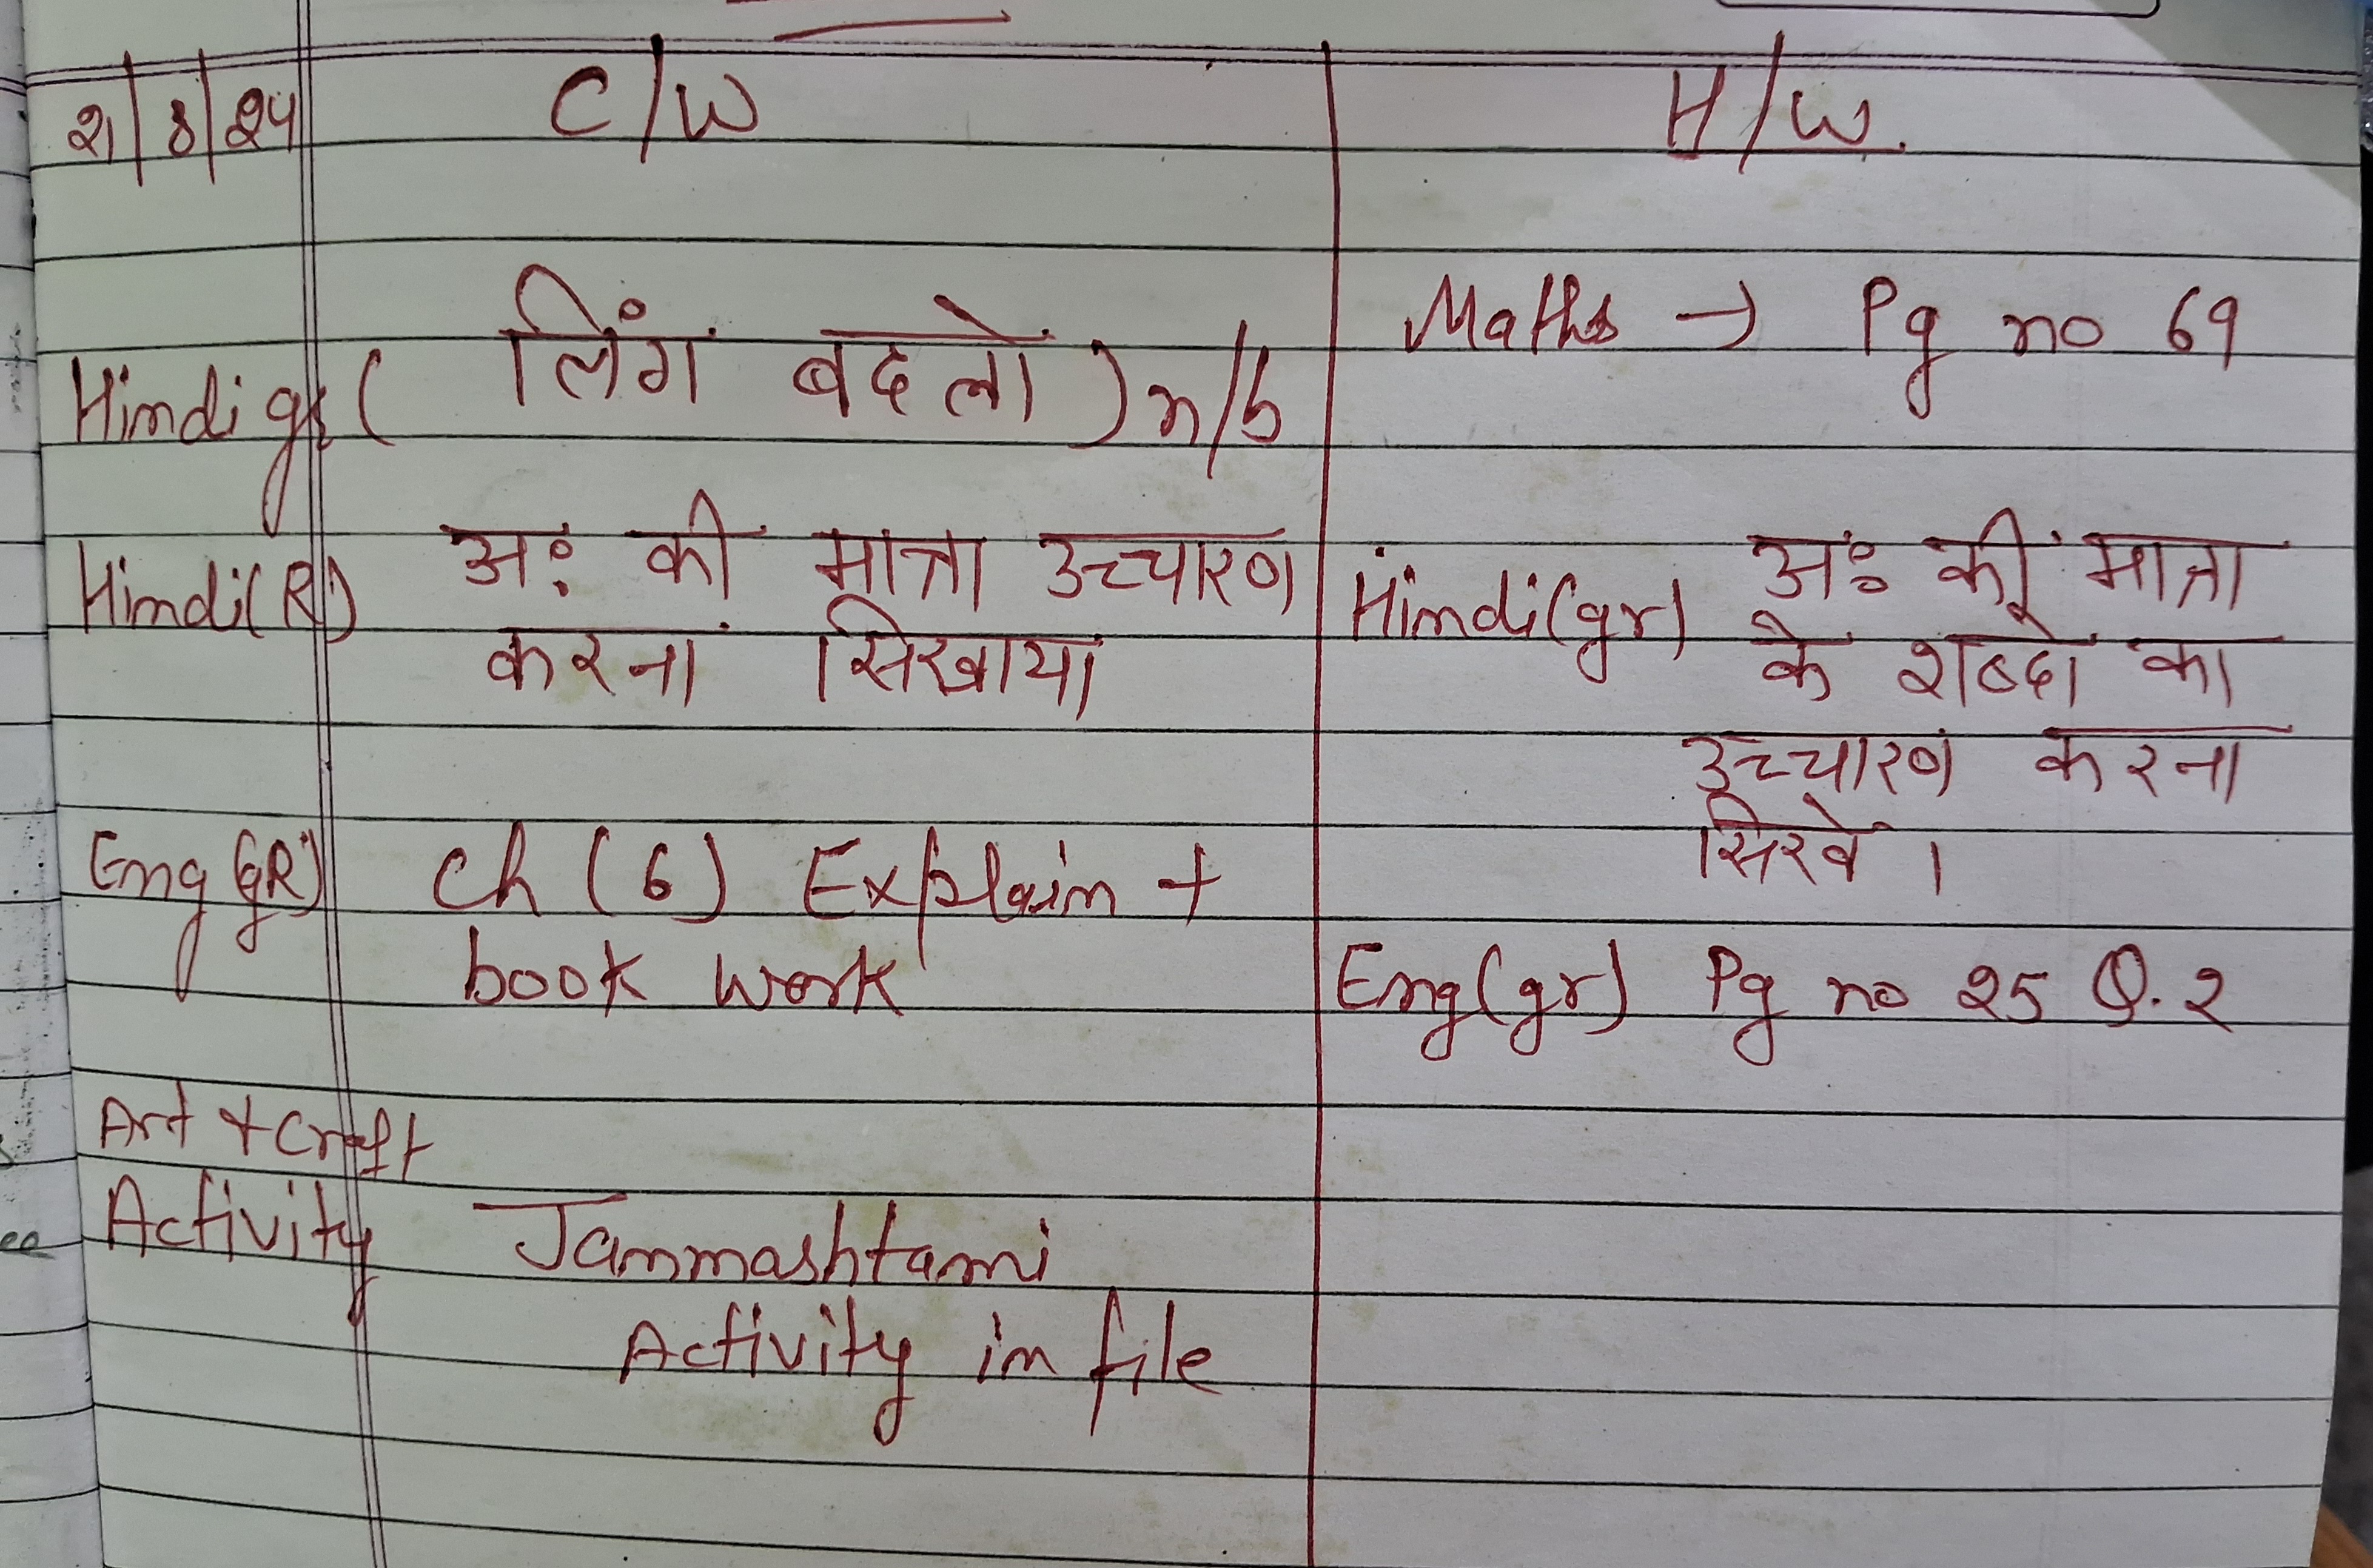 21/8/24 C/W
Hindi gr ( लिंग बदलो ) n/b
Hindi(R) अः की मात्रा उच्चारण
करना सिखाया
Eng (GR) Ch (6) Explain +
book work
Art + Craft
Activity Janmashtami
Activity in file
H/W.
Maths → Pg no 69
Hindi(gr) अः की मात्रा
के शब्दो का
उच्चारण करना
सिखे ।
Eng(gr) Pg no 25 Q.2